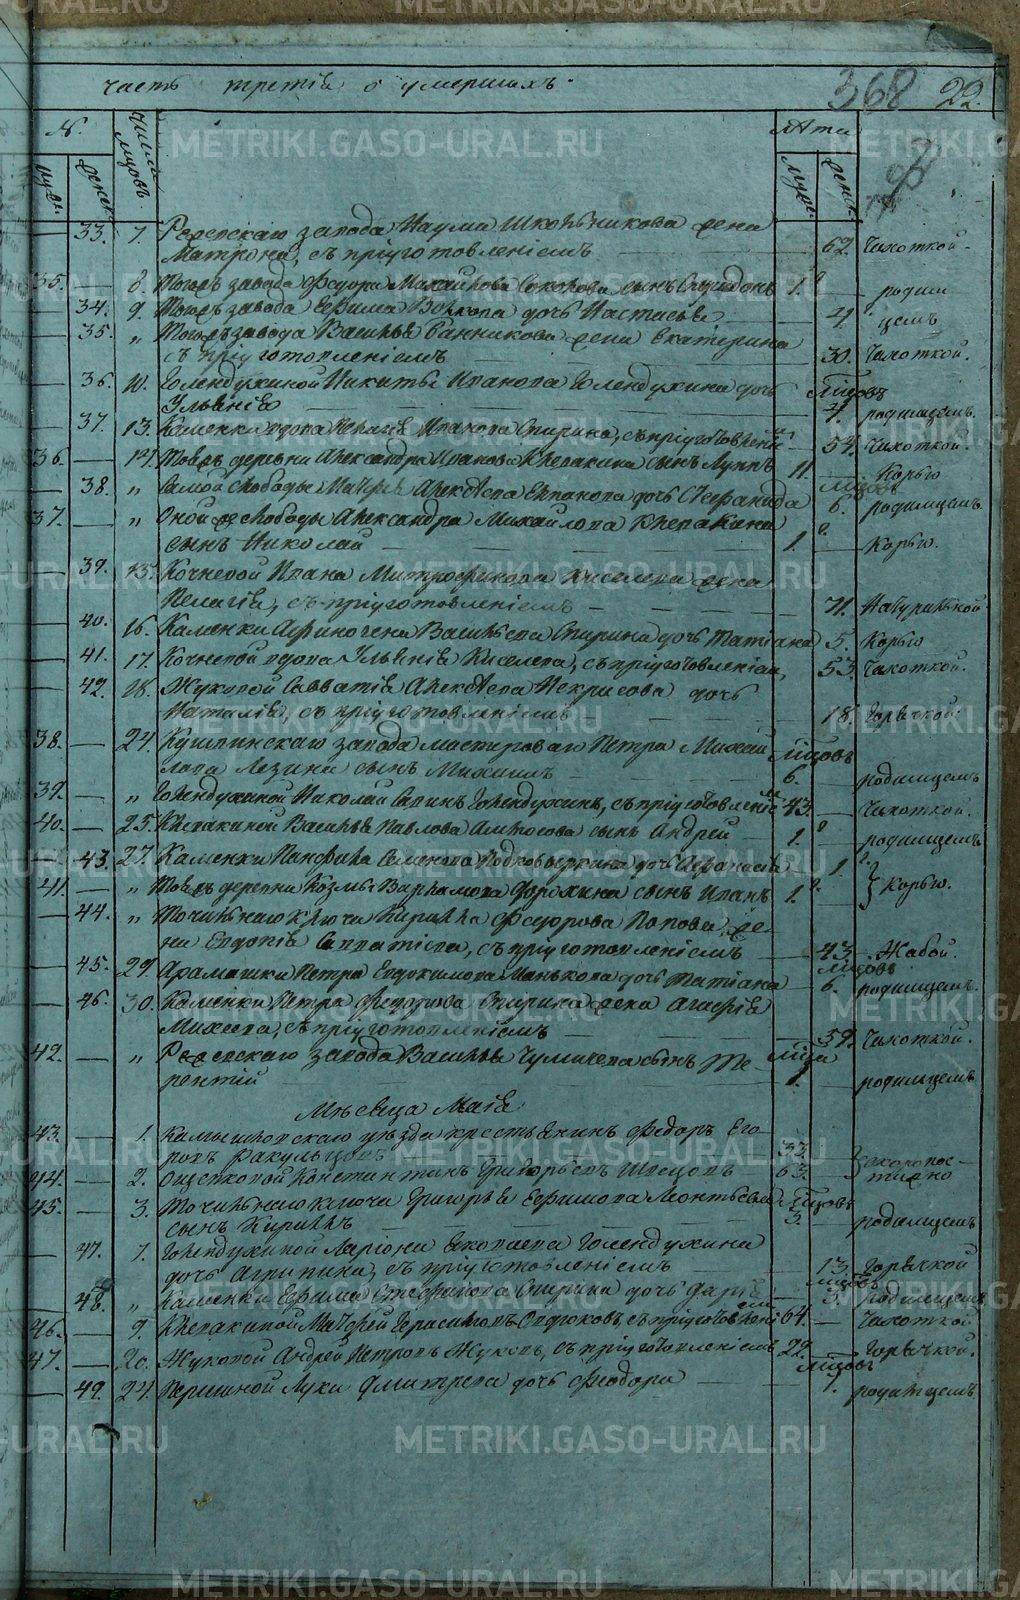 METRIKI.GASO-URAL.RU
часть третія о умершихъ
368 22.
№
Числа мцовъ
Лѣта
муж.
женск.
муж.
женск.
33. 7. Режевскаго завода Наума Школьникова жена
Матрона, съ пріуготовленіемъ 62. Чахоткой.
35. 8. Тогожъ завода Федора Михайлова сынъ Спиридонъ 1. родим
34. 9. Тогожъ завода Ефима дочь Настасья 4. цемъ
35. „ Тогожъ завода Василья Банникова жена Екатерина
съ пріуготовленіемъ 30. Чахоткой.
36. 10. Голендухиной Никиты Иванова Голендухина дочь мцовъ
Ульянія 4. родимцемъ.
37. 13. Каменки вдова Пелагія Иванова Спирина, съ пріуготовленіемъ 57. Чахоткой.
36. 14. Товожъ деревни Александра Иванова Клевакина сынъ Луппъ 11 Корью
38. „ Самой слободы Алексѣева дочь Стефанида мцовъ 6. родимцемъ.
37. „ Оной слободы Александра Михайлова Клевакина
сынъ Николай 1. Корью.
39. 15. Кочневой Ивана Митрофанова Киселева жена
Пелагія, съ пріуготовленіемъ 71. Натуральной
40. 16. Каменки Афиногена Васильева Спирина дочь Татіана 5. Корью
41. 17. Кочневой вдова Ульянія Киселева, съ пріуготовленіем, 53. Чахоткой.
42. 18. Жуковой Савватія Алексѣева Некрасова дочь
Наталія, съ пріуготовленіемъ 18. Горячкой.
38. 24. Кушвинскаго завода мастероваго Петра Михай
лова Лезина сынъ Михаилъ мцовъ 6. родимцемъ
39. „ Голендухиной Николай Савинъ Голендухинъ, съ пріуготовленіемъ 43. Чахоткой.
40. 25. Клевакиной Василья Павлова Амосова сынъ Андрей 1. родимцемъ
43. 27. Каменки Панфила Семенова Подковыркина дочь Афанасія 1.
41. „ Товожъ деревни Козмы Варламова сынъ Иванъ 1. Корью.
44. „ Точильнаго ключа Кирилла Федорова Попова же-
на Евдокія Савватіева, съ пріуготовленіемъ 43. Жабой.
45. 29. Арамашки Петра Евдокимова Манькова дочь Татіана мцовъ 6. родимцемъ.
46. 30. Каменки Петра Федорова Спирина жена Агафія
Михеева, съ пріуготовленіемъ 59. Чахоткой.
42. „ Режевскаго завода Василья Чумичева сынъ Те-
рентій мцъ 1. родимцемъ
Мѣсяца Маія
43. 1. Камышловскаго уѣзда крестьянинъ Федоръ Его-
ровъ Ракульцовъ 33. скоропос-
44. 2. Ощепковой Константинъ Григорьевъ Швецовъ 63. тижно
45. 3. Точильнаго ключа Григорья Ефимова Леонтьева мцовъ
сынъ Кириллъ 3. родимцемъ
47. 7. Голендухиной Ларіона Яковлева Голендухина
дочь Агрипина, съ пріуготовленіемъ 13. Горячкой
48. „ Каменки Ефима Стефанова Спирина дочь Дарія мцовъ 3. родимцемъ
46. 9. Клевакиной Матфей Герасимовъ съ пріуготовленіемъ 64. Чахоткой
47. 20. Жуковой Андрей Петровъ Жуковъ, съ пріуготовленіемъ 22. Горячкой.
49. 24. Першиной Луки Дмитрева дочь Феодора мцовъ 1. родимцемъ